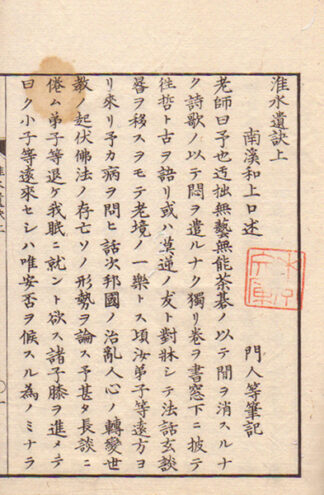 淮水遺訣上
南溪和上口述　門人等筆記
老師曰予也迂拙無藝無能茶碁ノ以テ間ヲ消スルナ
ク詩歌ノ以テ悶ヲ遣ルナク獨リ卷ヲ書窓下ニ披テ
徃哲ト古ヲ語リ或ハ莫逆ノ友ト對牀シテ法話玄談
晷ヲ移スヲモテ老境ノ一樂トス頃汝弟子等遠方ヨ
リ來リ予カ病ヲ問ヒ話次邦國治亂人心ノ轉變世
教ノ起伏佛法ノ存亡ソノ形勢ヲ論ス予甚タ長談ニ
倦ム弟子等退ケ我眠ニ就ント欲ス諸子膝ヲ進メテ
曰ク小子等遠來セシハ唯安否ヲ候スル為ノミナラ